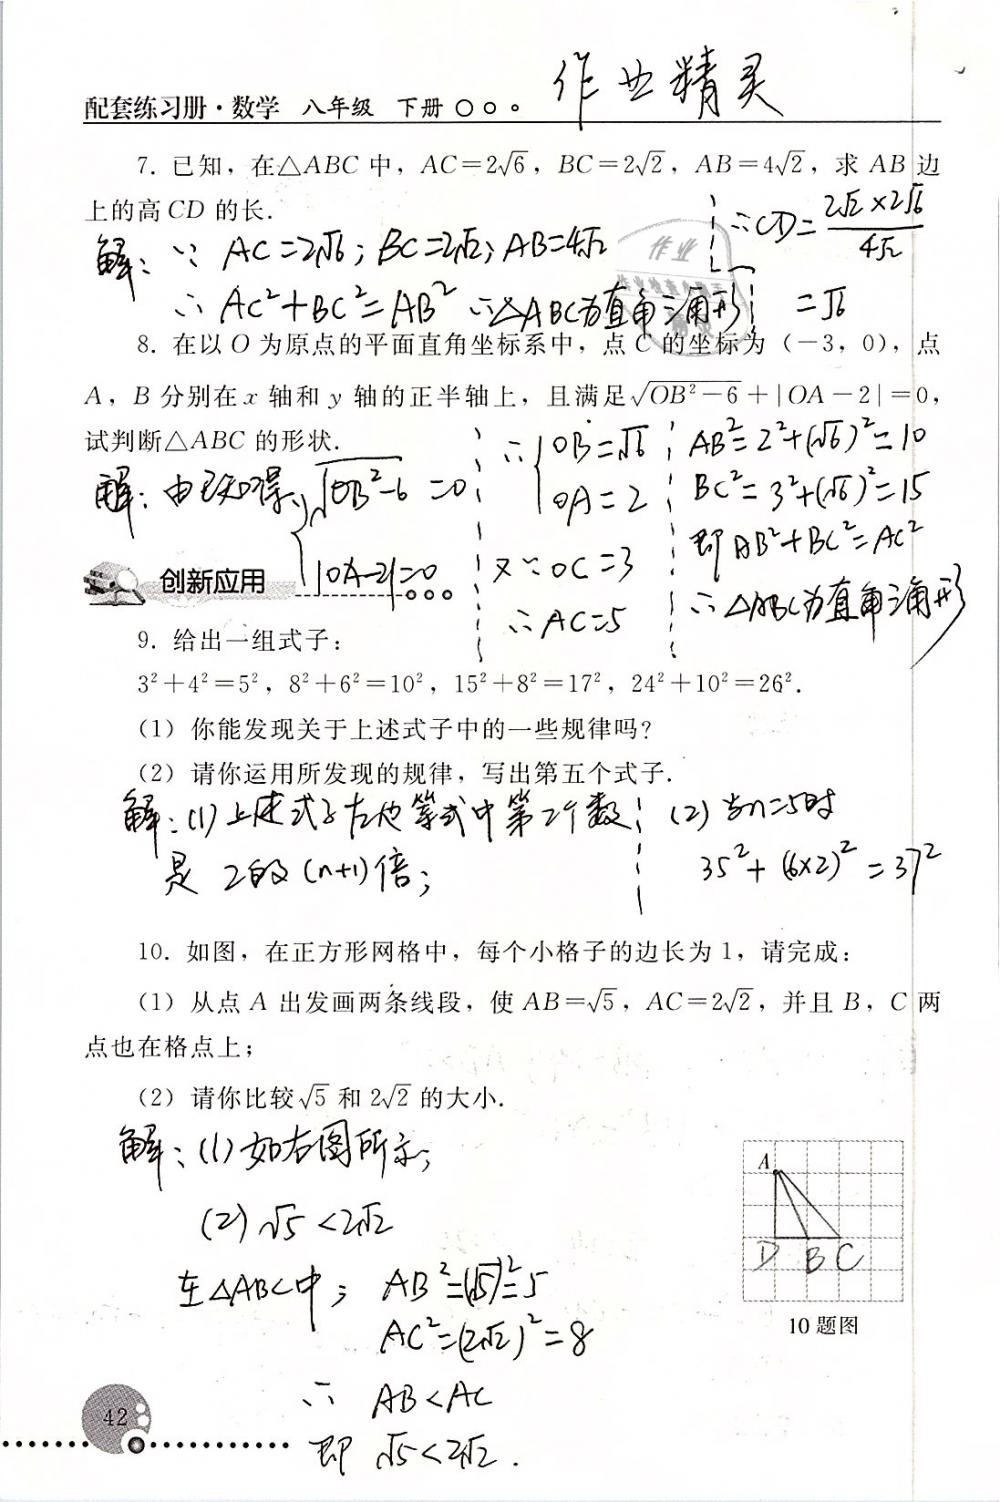 作业精灵
配套练习册·数学 八年级 下册
7. 已知，在△ABC 中，AC=2√6，BC=2√2，AB=4√2，求 AB 边
上的高 CD 的长.
解：∵ AC=2√6；BC=2√2；AB=4√2
∴ AC²+BC²=AB² ∴△ABC为直角三角形
∴CD=2√2×2√6/4√2
=√6
作业
8. 在以 O 为原点的平面直角坐标系中，点 C 的坐标为（－3，0），点
A，B 分别在 x 轴和 y 轴的正半轴上，且满足√OB²－6＋|OA－2|＝0，
试判断△ABC 的形状.
解：由已知得 { √OB²-6 =0
|OA-2|=0
∴ { OB=√6
OA=2
又∵OC=3
∴AC=5
AB²=2²+(√6)²=10
BC²=3²+(√6)²=15
即AB²+BC²=AC²
∴△ABC为直角三角形
创新应用
9. 给出一组式子：
3²＋4²＝5²，8²＋6²＝10²，15²＋8²＝17²，24²＋10²＝26².
（1）你能发现关于上述式子中的一些规律吗？
（2）请你运用所发现的规律，写出第五个式子.
解：(1)上述式子左边等式中第2个数
是2的(n+1)倍；
(2)当n=5时
35²+(6×2)²=37²
10. 如图，在正方形网格中，每个小格子的边长为 1，请完成：
（1）从点 A 出发画两条线段，使 AB＝√5，AC＝2√2，并且 B，C 两
点也在格点上；
（2）请你比较√5 和 2√2 的大小.
解：(1)如右图所示；
(2)√5<2√2
在△ABC中；AB²=(√5)²=5
AC²=(2√2)²=8
∴ AB<AC
即 √5<2√2.
A
D B C
10 题图
42